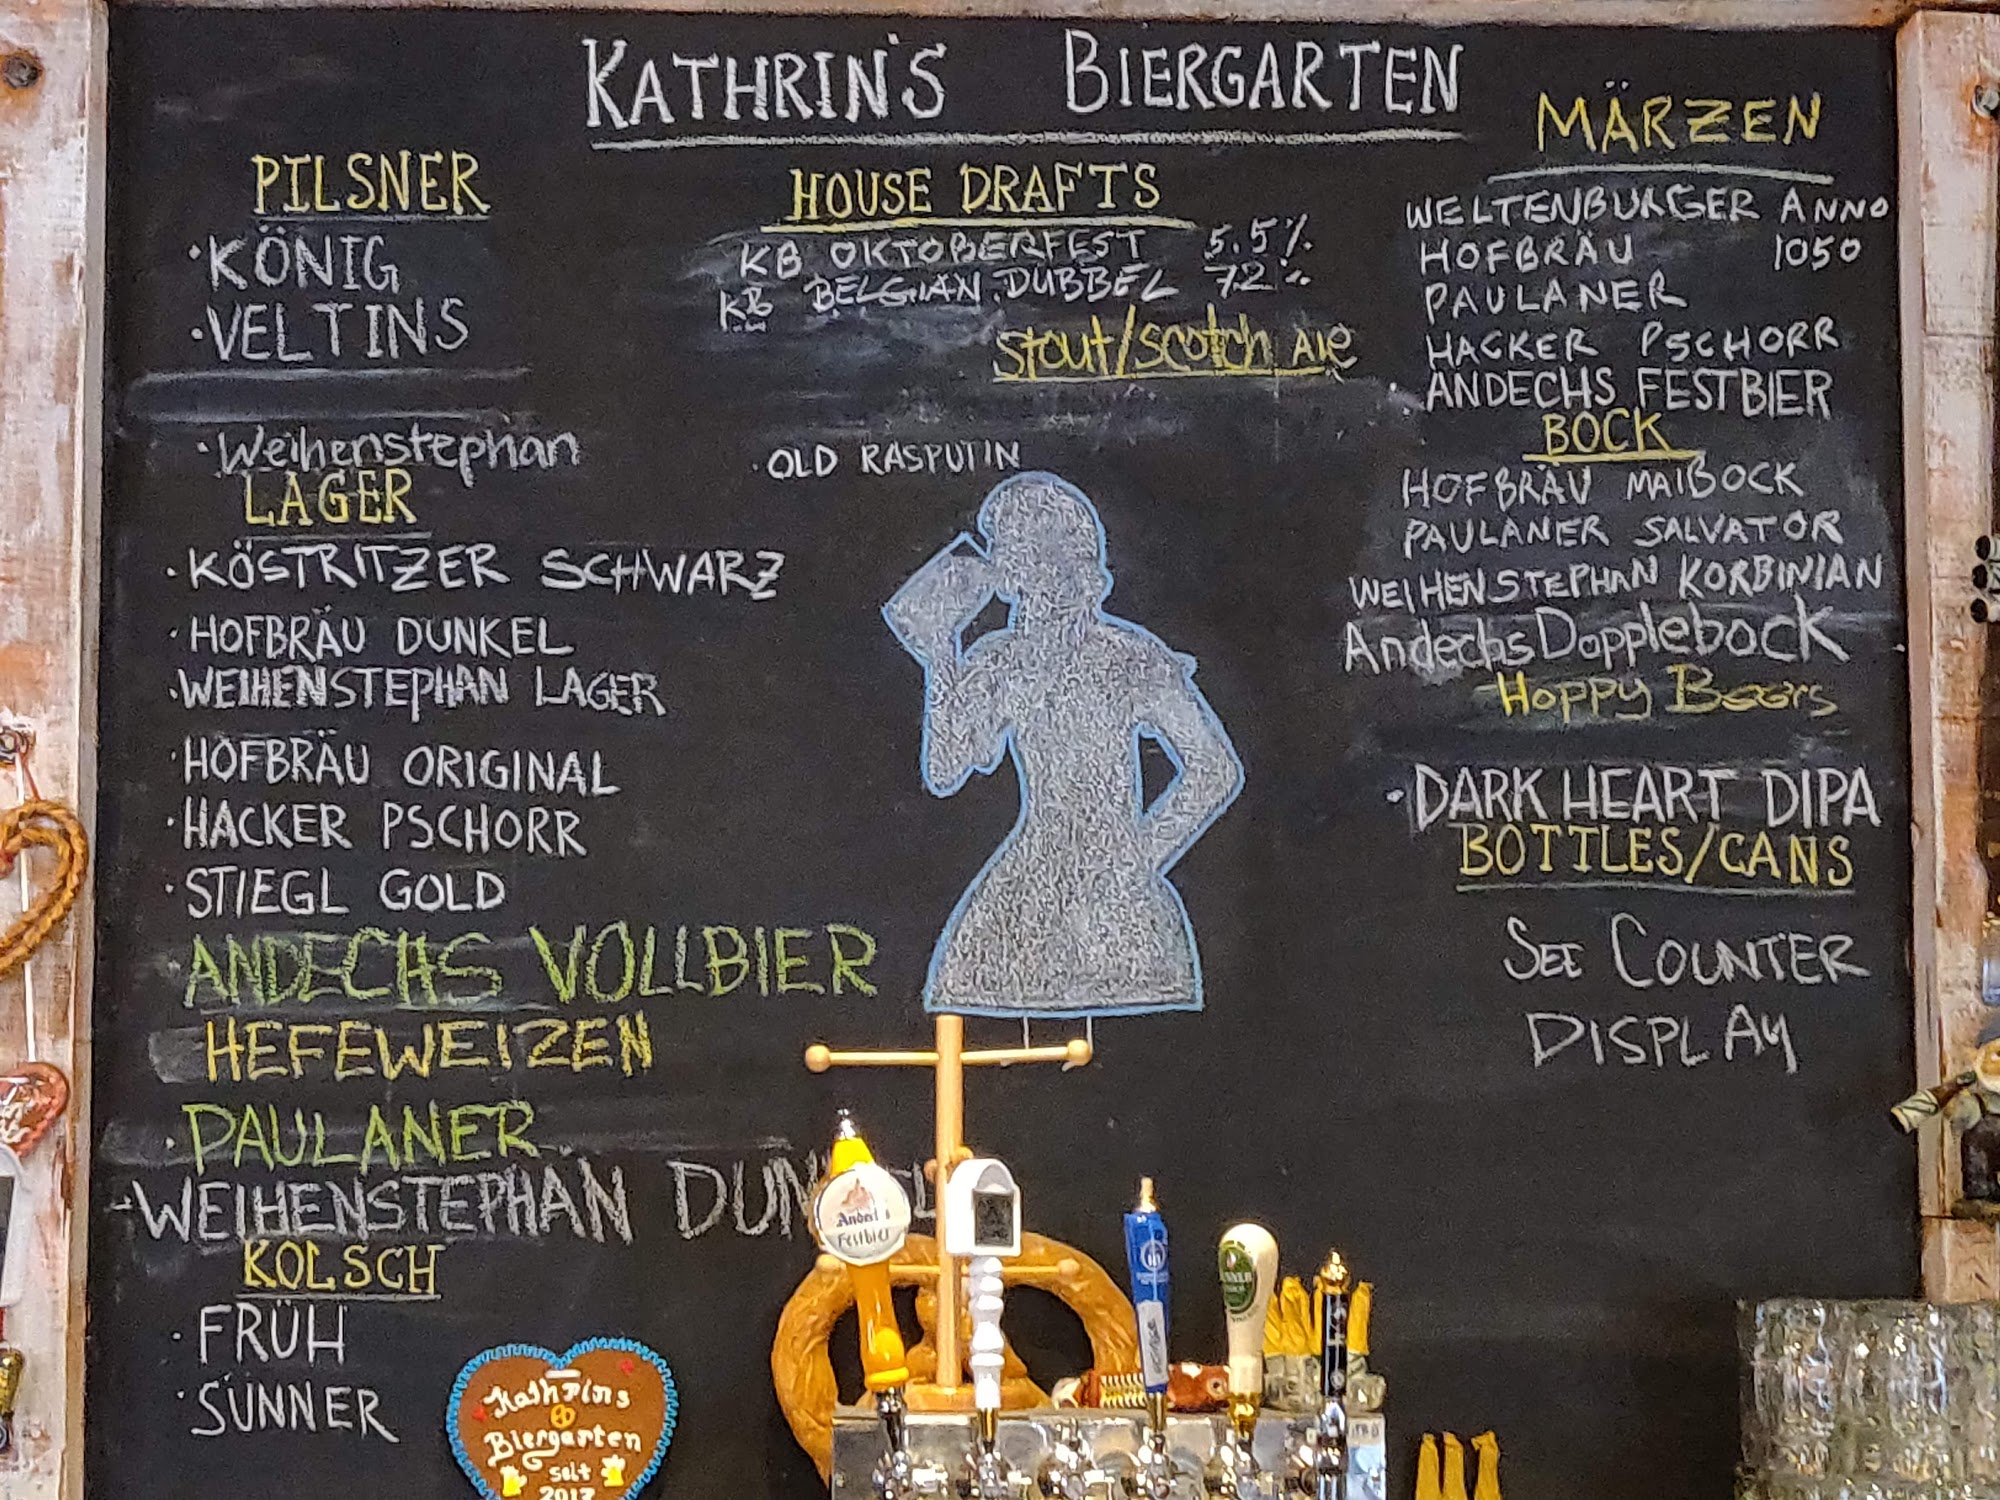 KATHRIN'S BIERGARTEN
PILSNER
·KÖNIG
·VELTINS
·Weihenstephan
LAGER
·KÖSTRITZER SCHWARZ
·HOFBRÄU DUNKEL
·WEIHENSTEPHAN LAGER
·HOFBRÄU ORIGINAL
·HACKER PSCHORR
·STIEGL GOLD
ANDECHS VOLLBIER
HEFEWEIZEN
·PAULANER
-WEIHENSTEPHAN
KOLSCH
·FRÜH
·SÜNNER
HOUSE DRAFTS
KB OKTOBERFEST 5.5%
KB BELGIAN DUBBEL 7.2%
Stout/Scotch Ale
·OLD RASPUTIN
MÄRZEN
WELTENBURGER ANNO
HOFBRÄU 1050
PAULANER
HACKER PSCHORR
ANDECHS FESTBIER
BOCK
HOFBRÄU MAIBOCK
PAULANER SALVATOR
WEIHENSTEPHAN KORBINIAN
Andechs Dopplebock
Hoppy Beers
·DARK HEART DIPA
BOTTLES/CANS
SEE COUNTER
DISPLAY
Festbier
Kathrins
Biergarten
seit
2017